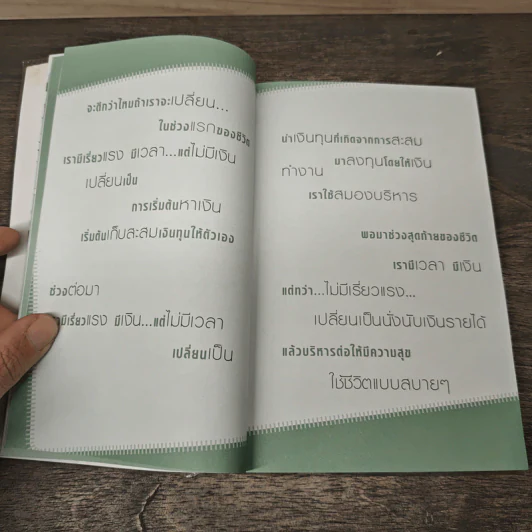 จะดีกว่าไหมถ้าเราจะเปลี่ยน...
ในช่วงแรกของชีวิต
เรามีเรี่ยวแรง มีเวลา...แต่ไม่มีเงิน
เปลี่ยนเป็น
การเริ่มต้นหาเงิน
เริ่มต้นเก็บสะสมเงินทุนให้ตัวเอง
ช่วงต่อมา
มีเรี่ยวแรง มีเงิน...แต่ไม่มีเวลา
เปลี่ยนเป็น
นำเงินทุนที่เกิดจากการสะสม
มาลงทุนโดยให้เงิน
ทำงาน
เราใช้สมองบริหาร
พอมาช่วงสุดท้ายของชีวิต
เรามีเวลา มีเงิน
แต่ทว่า...ไม่มีเรี่ยวแรง...
เปลี่ยนเป็นนั่งนับเงินรายได้
แล้วบริหารต่อให้มีความสุข
ใช้ชีวิตแบบสบายๆ